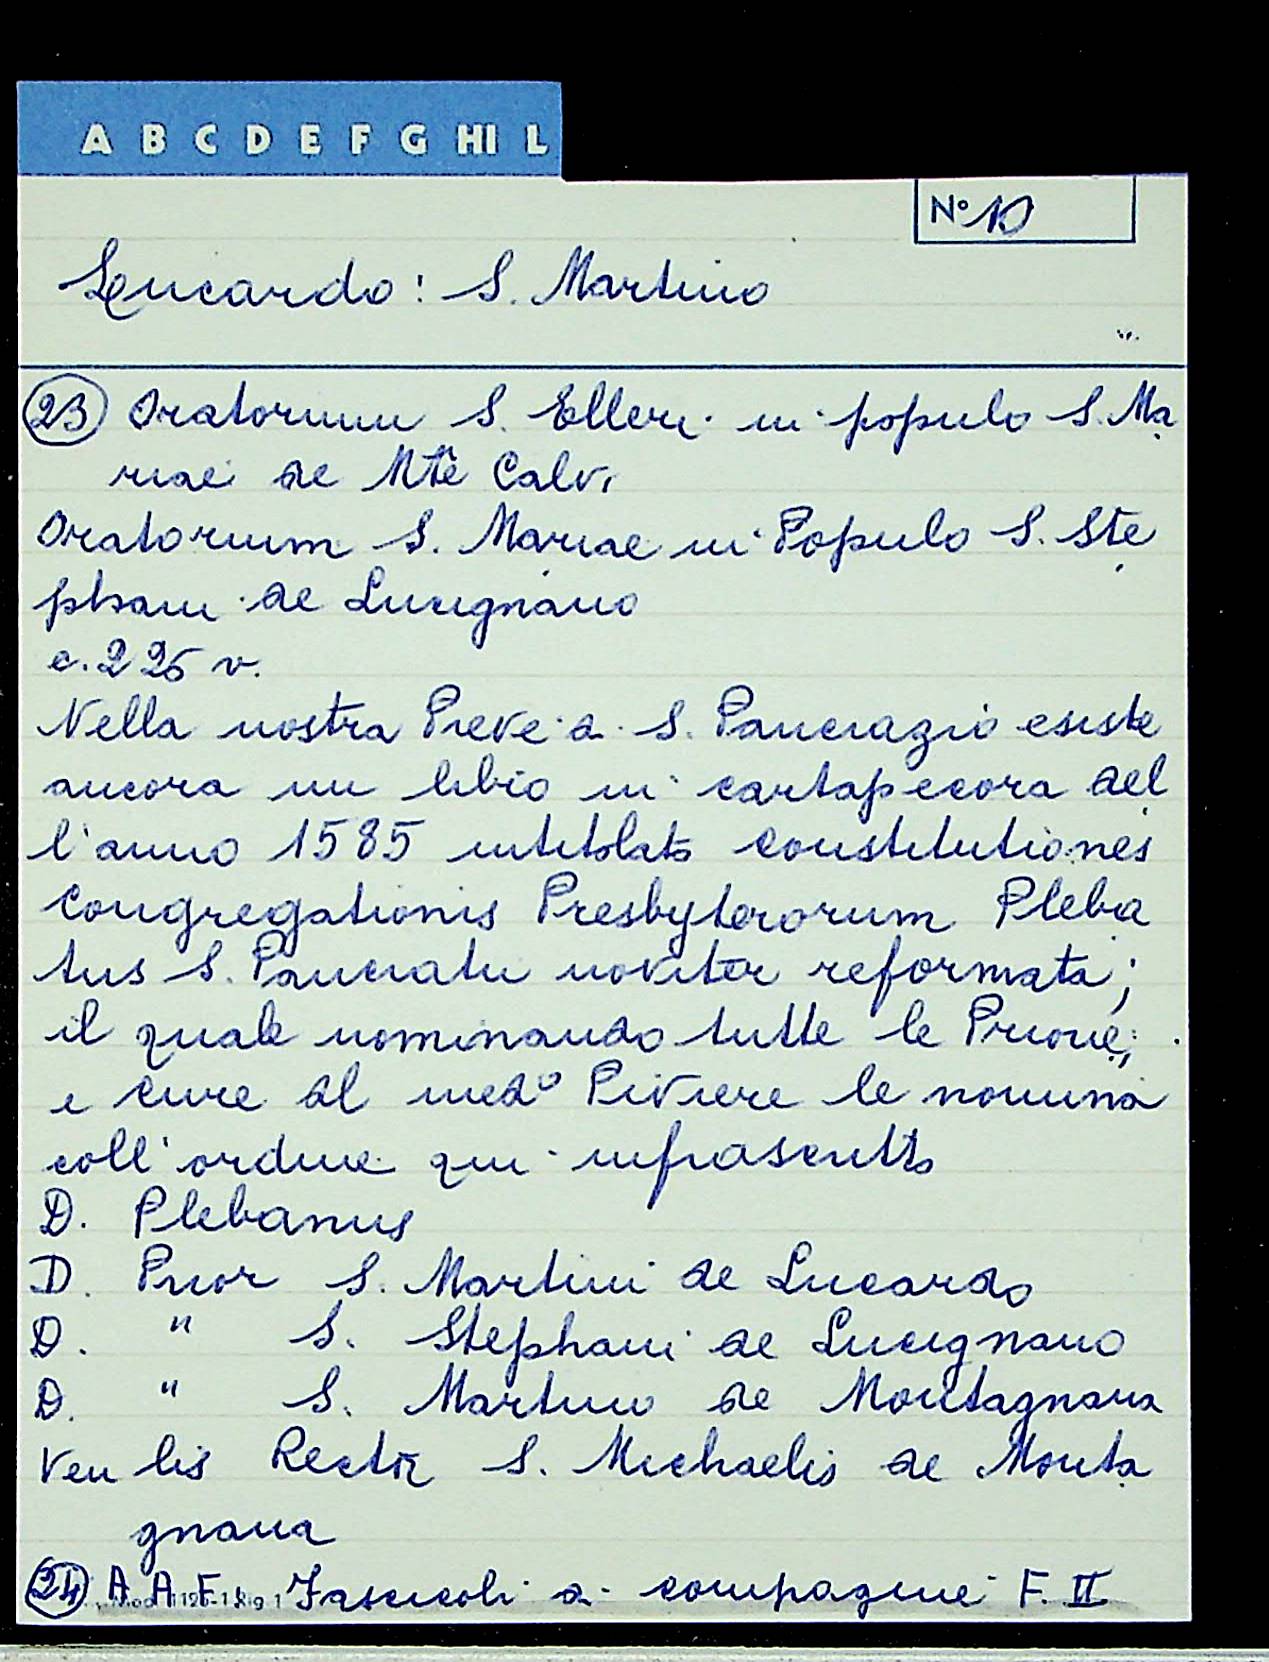 A B C D E F G HI L
N° 10
Lucardo: S. Martino
23 Oratorium S. Elleri in populo S. Ma
riae de Mte Calvi
Oratorium S. Mariae in Populo S. Ste
phani de Lucignano
c. 225 v.
Nella nostra Pieve a S. Pancrazio esiste
ancora un libro in cartapecora del
l'anno 1585 intitolato constitutiones
Congregationis Presbyterorum Pleba
tus S. Pancratii noviter reformata;
il quale nominando tutte le Priorie,
e cure al medo Piviere le nomina
coll'ordine qui infrascritto
D. Plebanus
D. Prior S. Martini de Lucardo
D. " S. Stephani de Lucignano
D. " S. Martino de Montagnana
Ven lis Rector S. Michaelis de Monta
gnana
24 A. A. F. Fascicoli a compagnie F. II